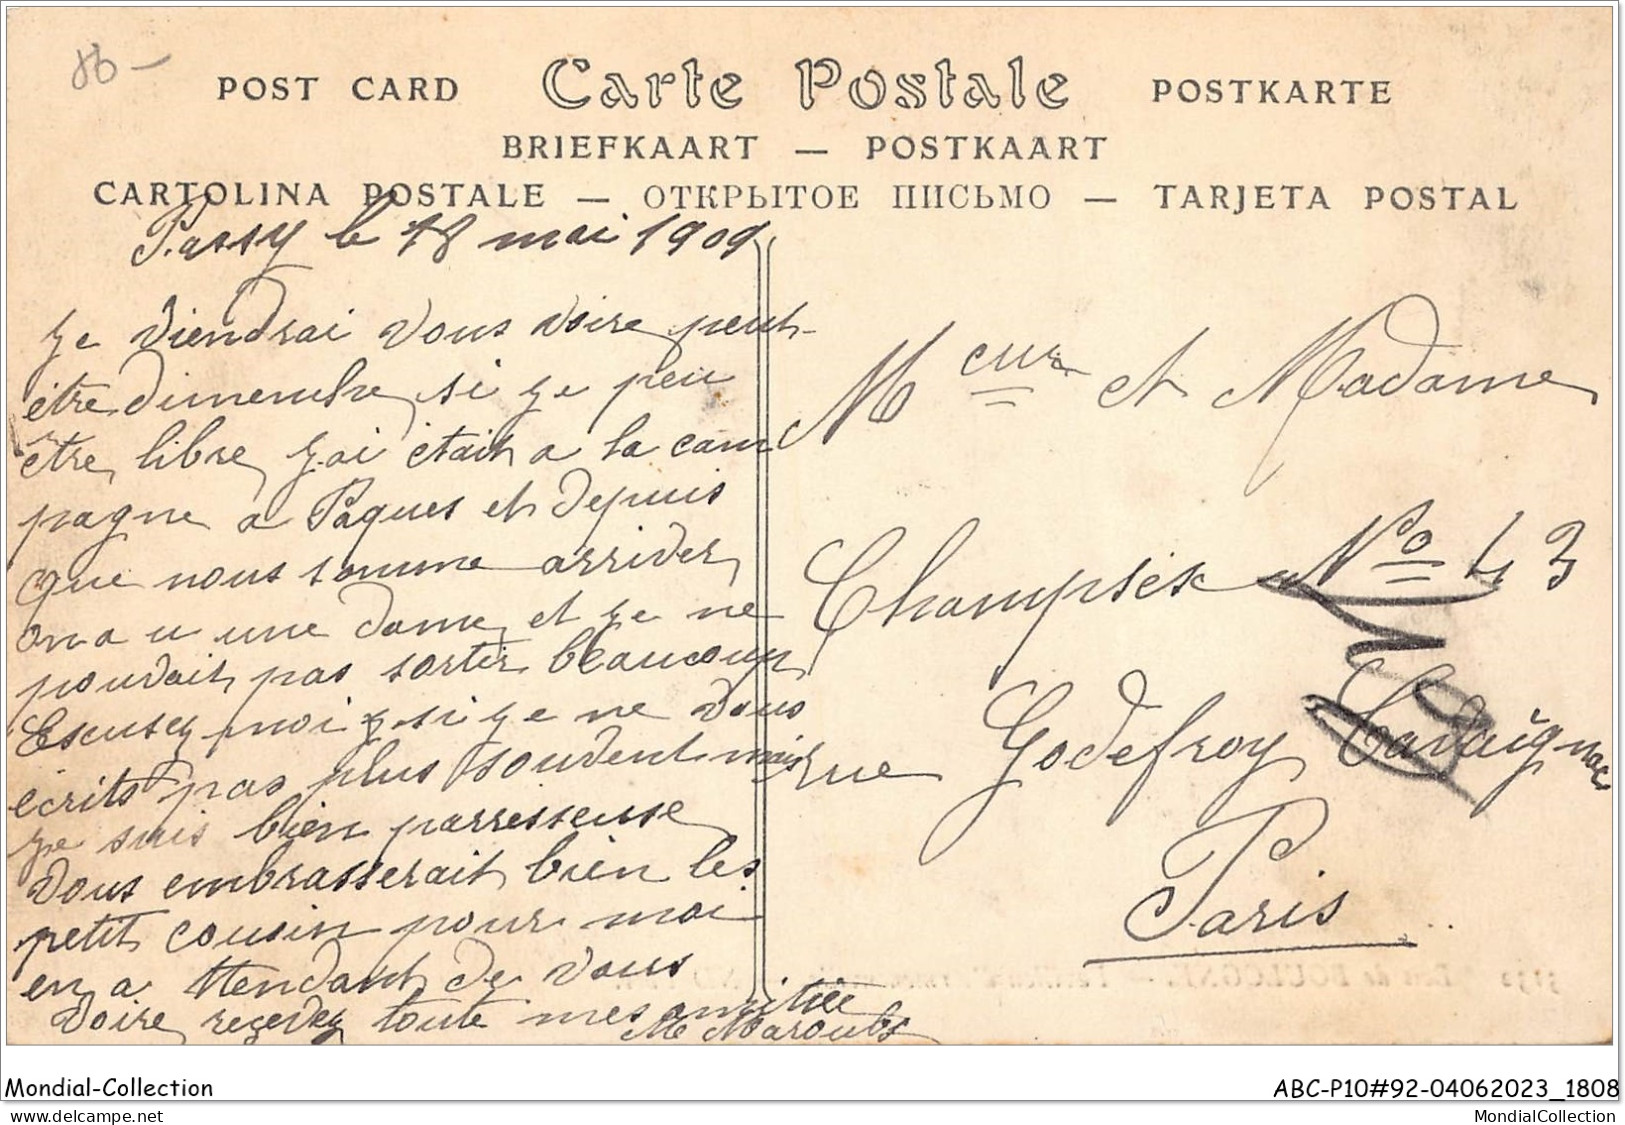 86 -
POST CARD Carte Postale POSTKARTE
BRIEFKAART — POSTKAART
CARTOLINA POSTALE — ОТКРЫТОЕ ПИСЬМО — TARJETA POSTAL
Passy le 18 mai 1909
Je viendrai vous voire peut-
être dimenche, si je peu
être libre, j'ai était a la cam
pagne a Paques et depuis
que nous somme arriver,
on a u une dame, et je ne
pouvait pas sortir beaucoup
Escusez moi si je ne vous
écrits pas plus souvent mais
je suis bien parresseuse
Vous embrasserait bien les
petit cousin pour moi
en attendant de vous
voire, recevez toute mes amitiée
Me Maroubs
Mr et Madame
Champseix No 43
rue Godefroy Cavaignac
Paris
Mondial-Collection
ABC-P10#92-04062023_1808
www.delcampe.net
MondialCollection